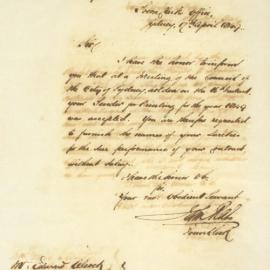 Town Clerk's Office,
Sydney, 17 April
Sir,
I have the honor to inform
you that at a Meeting of the Council of
the City of Sydney, holden on the Instant
your Tender for Painting for the year
was accepted. You are therefore requested
to furnish the names of your Sureties
for the due performance of your contract
without delay.
I have the honor
Sir
Your most Obedient Servant
Town Clerk
Mr. Edward